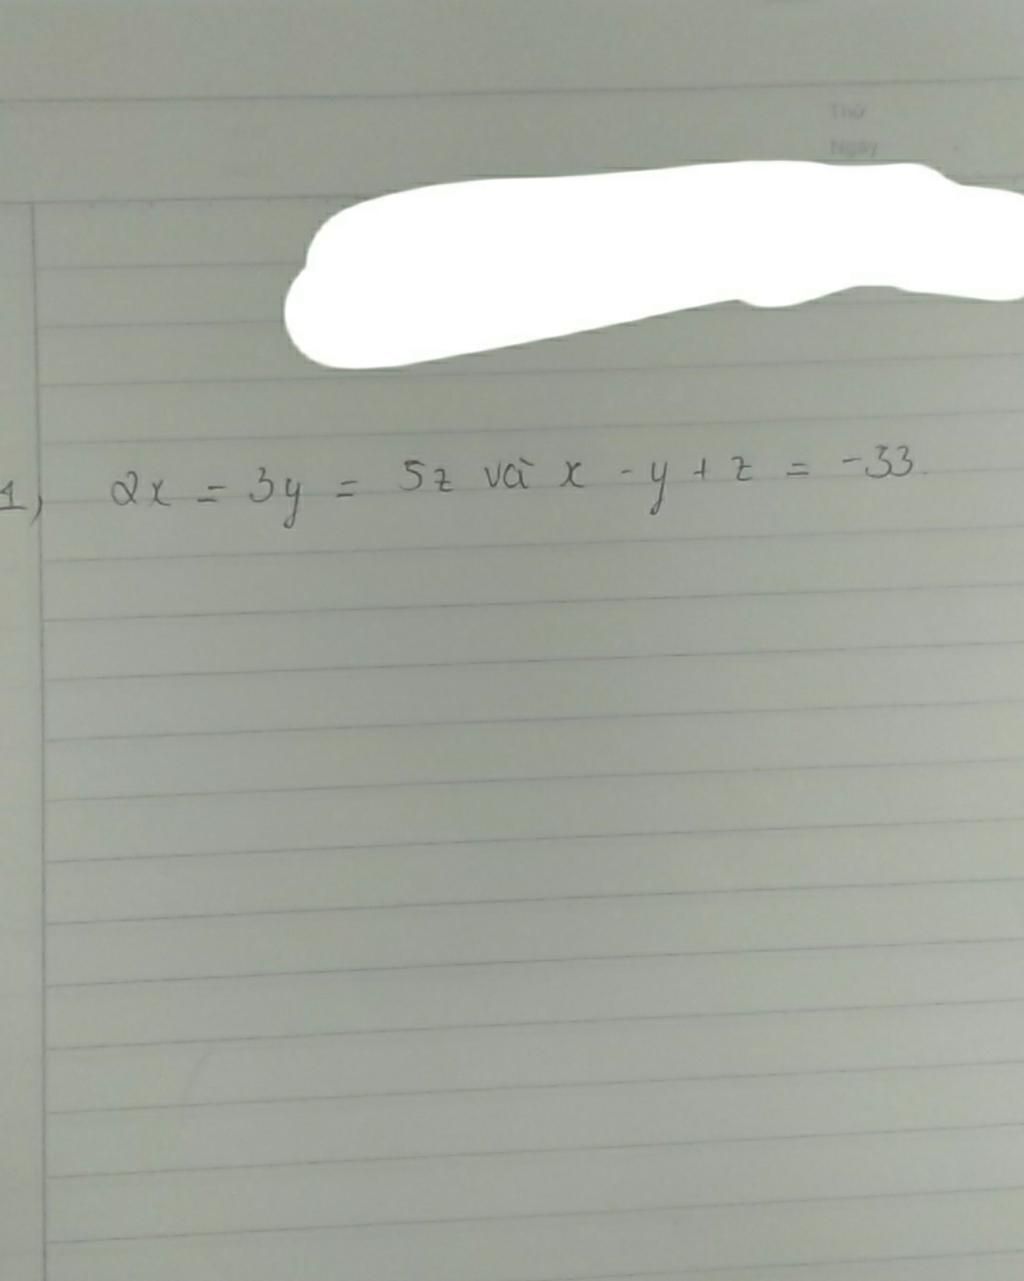 Thứ
Ngày
1) 2x = 3y = 5z và x - y + z = -33.